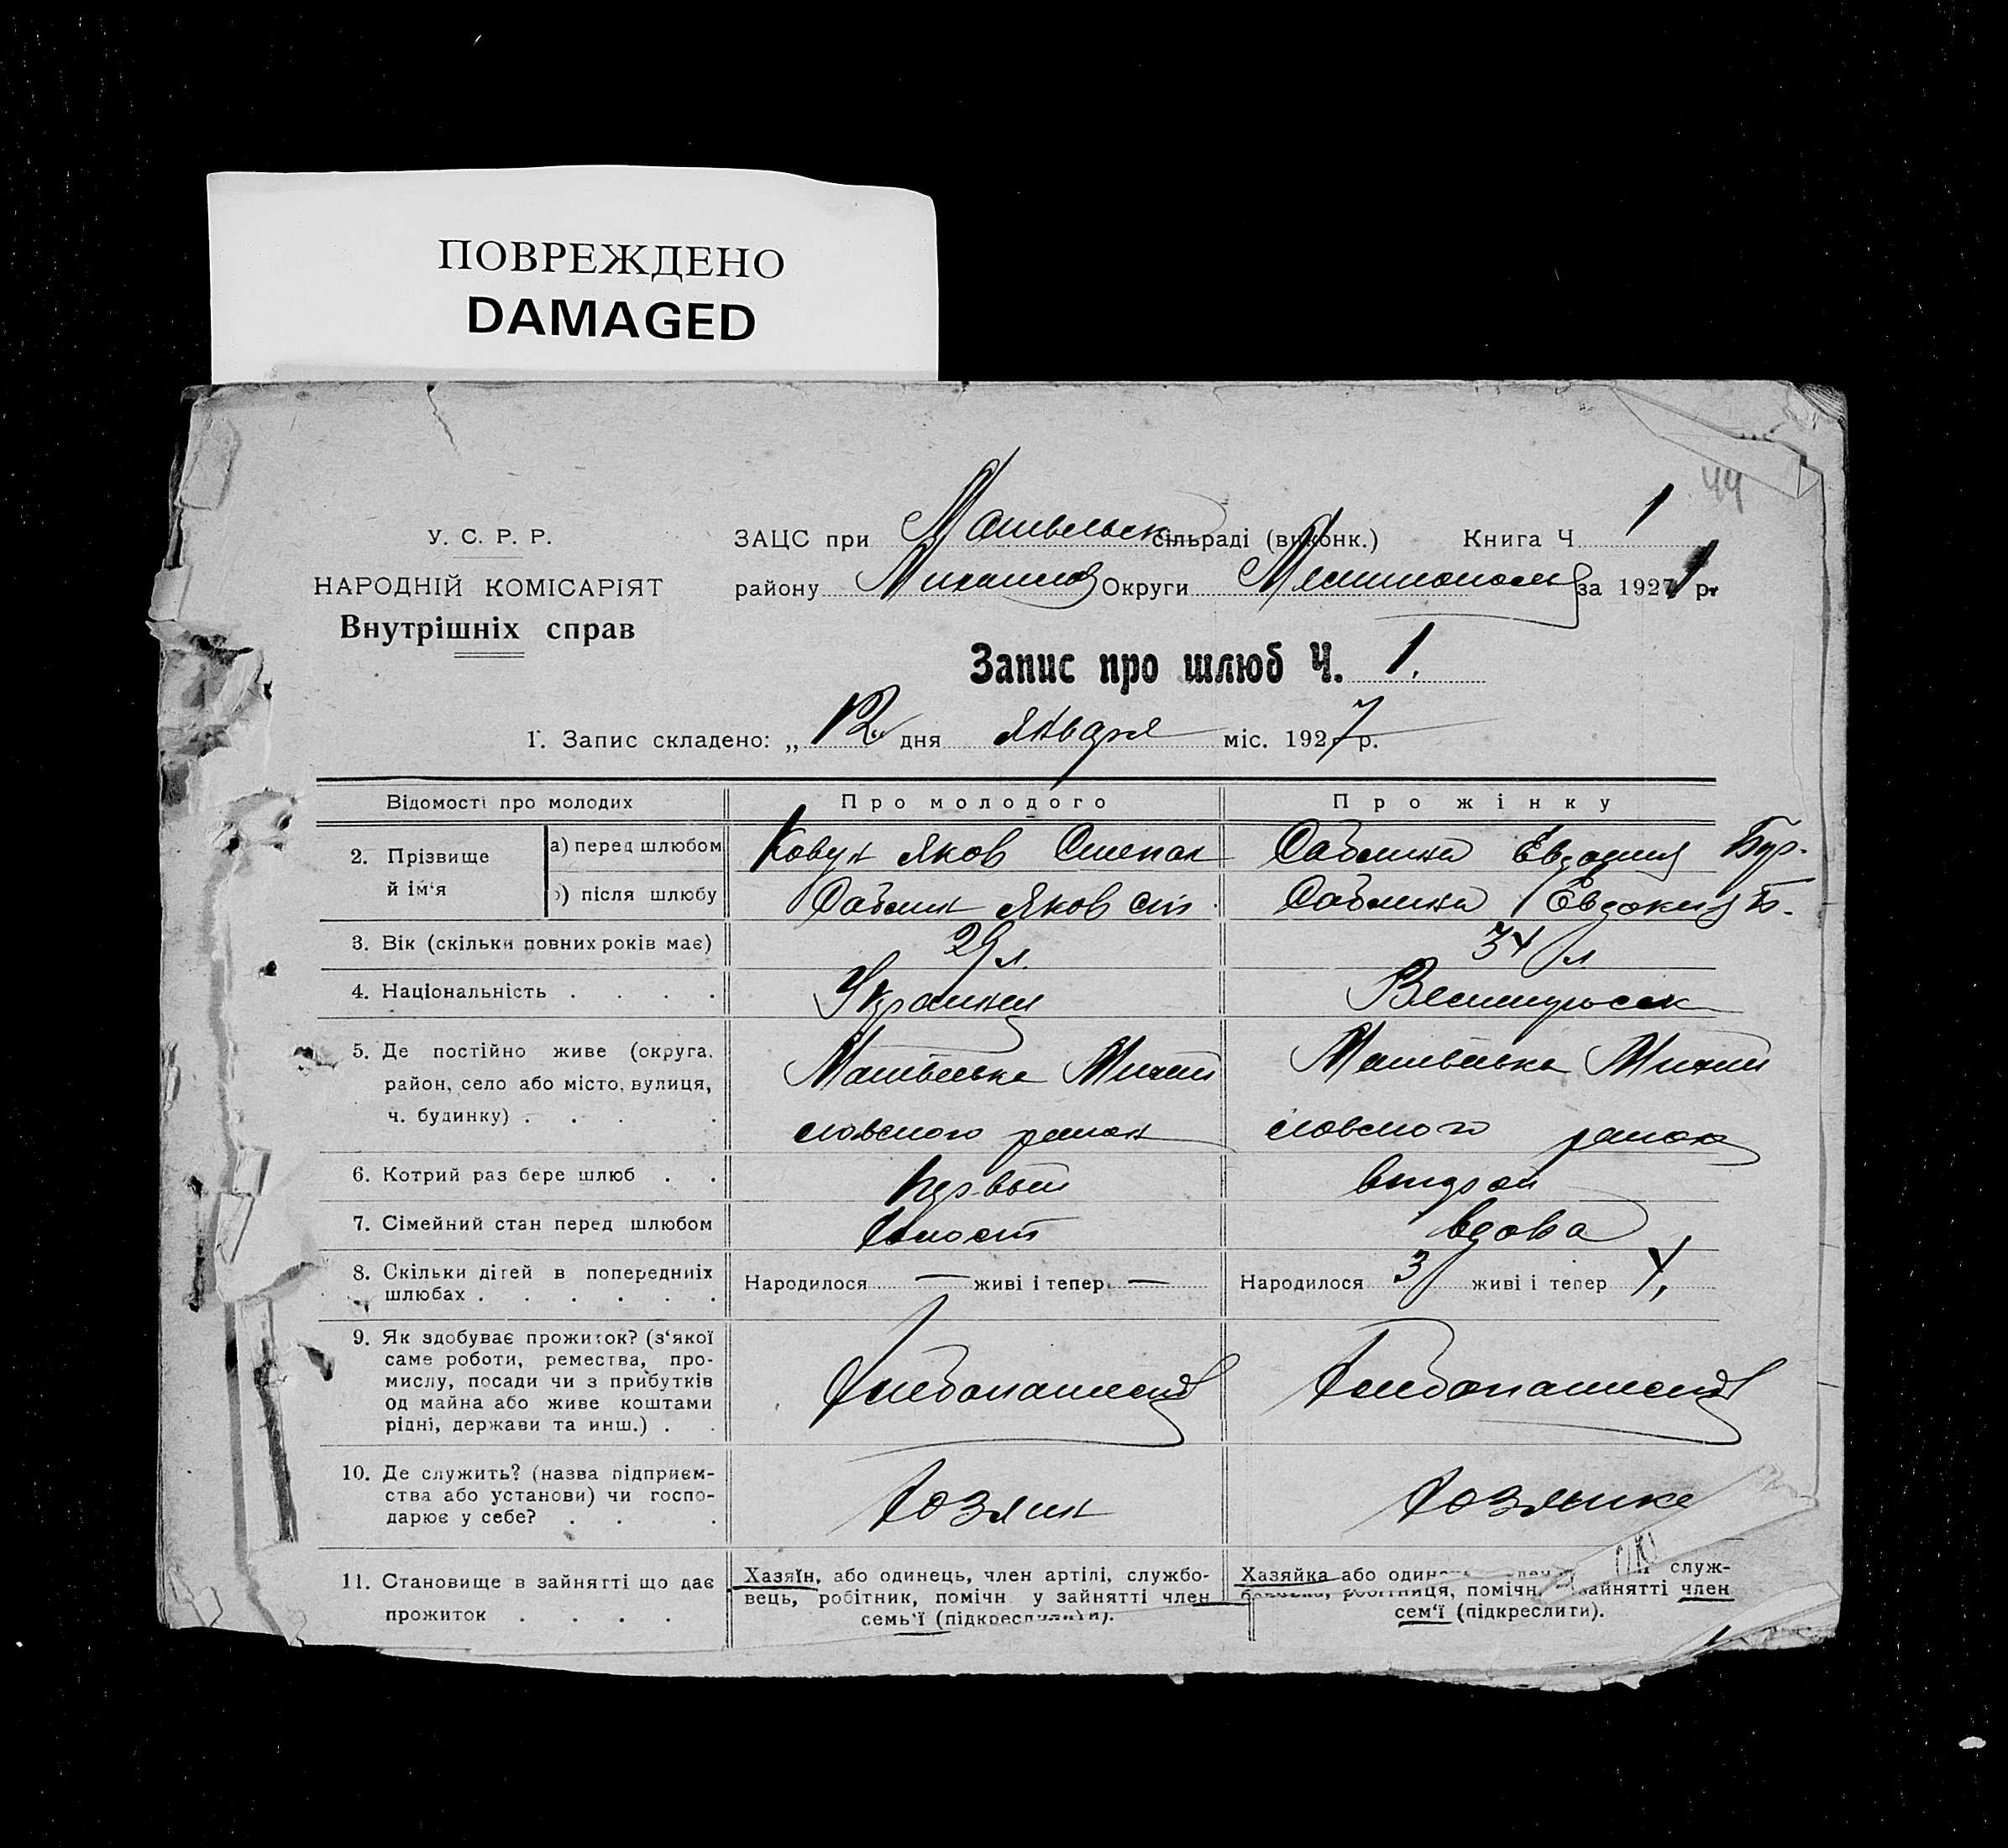 ПОВРЕЖДЕНО
DAMAGED
44
У. С. Р. Р.
НАРОДНІЙ КОМІСАРІЯТ
Внутрішніх справ
ЗАЦС при сільраді (виконк.) Книга Ч 1
району Михайлов Округи за 1927 р.
Запис про шлюб Ч. 1.
1. Запис складено: „ 12 дня января міс. 1927 р.
Відомості про молодих Про молодого Про жінку
2. Прізвище й ім‘я
а) перед шлюбом Ковун Яков Степан Саблина Евдокия Бур.
б) після шлюбу Саблин Яков Сте Саблина Евдокия Б.
3. Вік (скільки повних років має) 29 л. 34 л
4. Національність . . . . Украинец
5. Де постійно живе (округа, район, село або місто, вулиця, ч. будинку) . . . .
Матвеевка Михай
ловского район
Матвеевка Михай
ловского район
6. Котрий раз бере шлюб . . первый второй
7. Сімейний стан перед шлюбом холост вдова
8. Скільки дітей в попередніх шлюбах . . . . . .
Народилося — живі і тепер —
Народилося 3 живі і тепер
9. Як здобуває прожиток? (з‘якої
саме роботи, ремества, про-
мислу, посади чи з прибутків
од майна або живе коштами
рідні, держави та инш.) . .
Хлебопашеств
Хлебопашеств
10. Де служить? (назва підприєм-
ства або установи) чи госпо-
дарює у себе? . . .
Хозяин
Хозяйка
11. Становище в зайнятті що дає
прожиток . . . .
Хазяїн, або одинець, член артілі, службо-
вець, робітник, помічн у зайнятті член
семь‘ї (підкреслити).
Хазяйка або одинець служ-
робітниця, помічн. зайнятті член
сем‘ї (підкреслити).